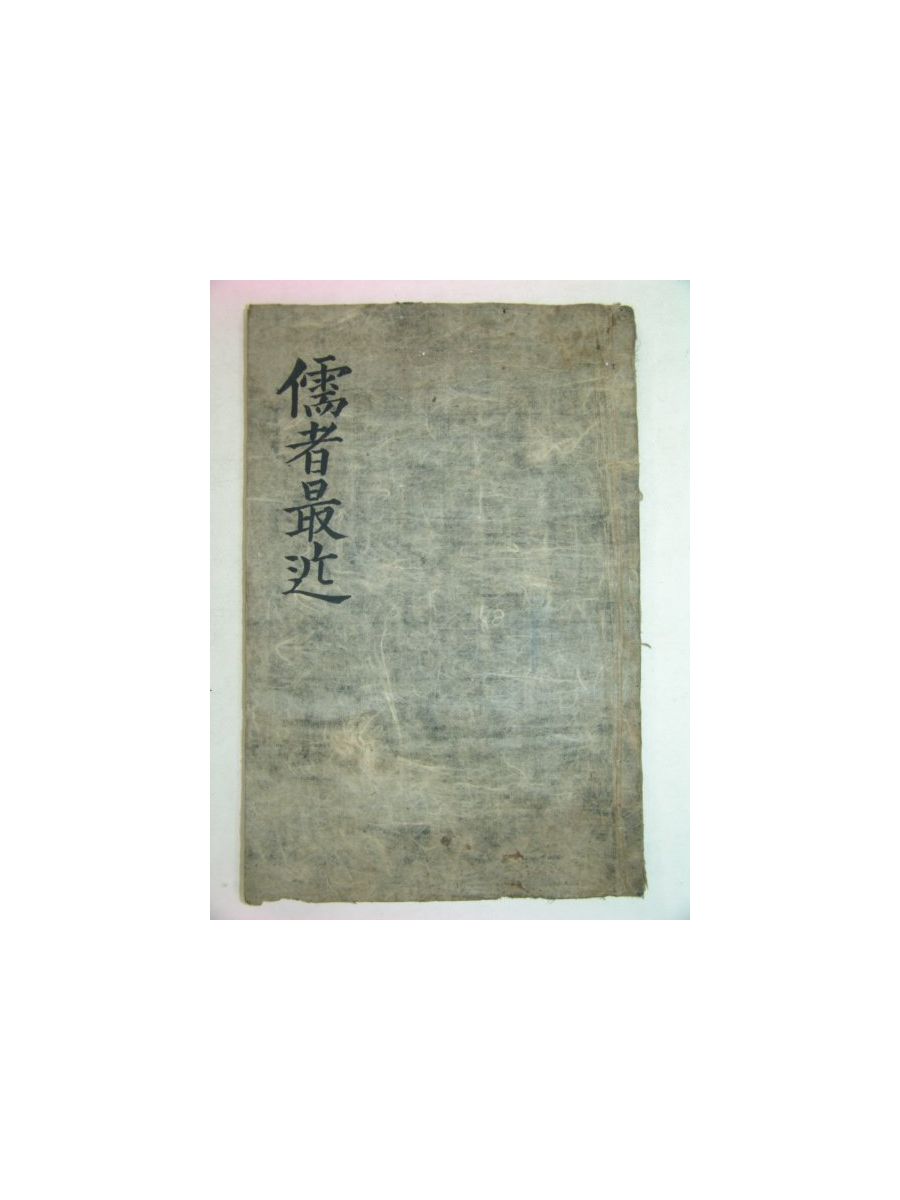 儒者最近